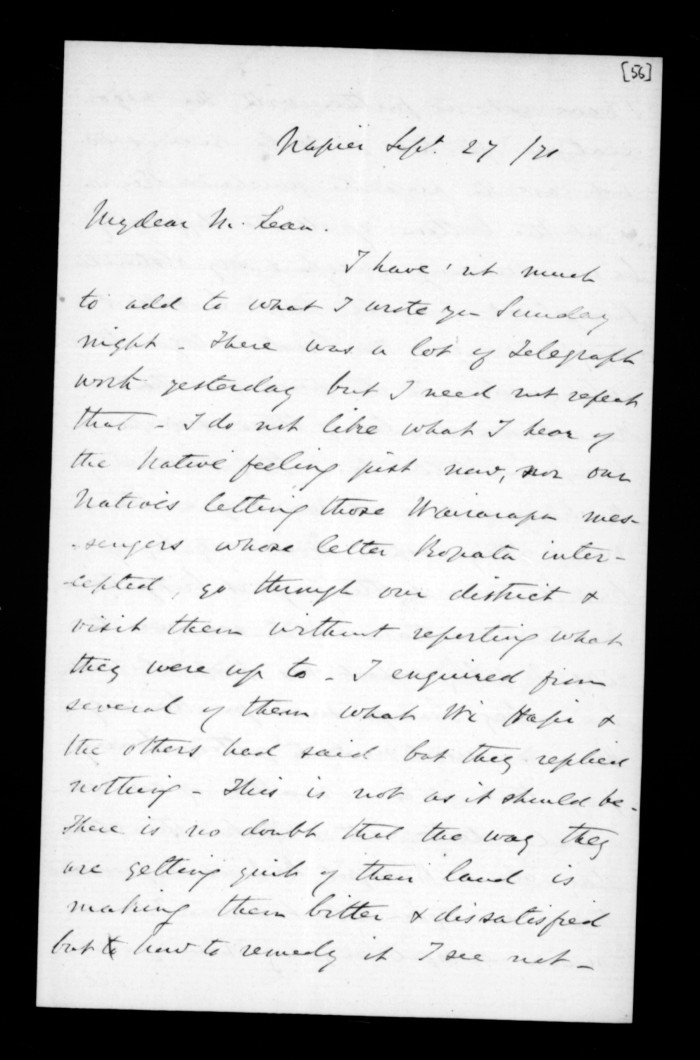 [56]
Napier Sept. 27 /71
My dear McLean.
I have'nt much
to add to what I wrote you Sunday
night - There was a lot of Telegraph
work yesterday but I need not repeat
that - I do not like what I hear of
the Native feeling just now, nor our
Natives letting those Wairarapa mes-
-sengers whose letter Ropata inter-
-cepted, go through our district &
visit them without reporting what
they were up to - I enquired from
several of them what Wi Hapi &
the others had said but they replied
nothing - This is not as it should be -
There is no doubt that the way they
are getting quit of their land is
making them bitter & dissatisfied
but how to remedy it I see not -